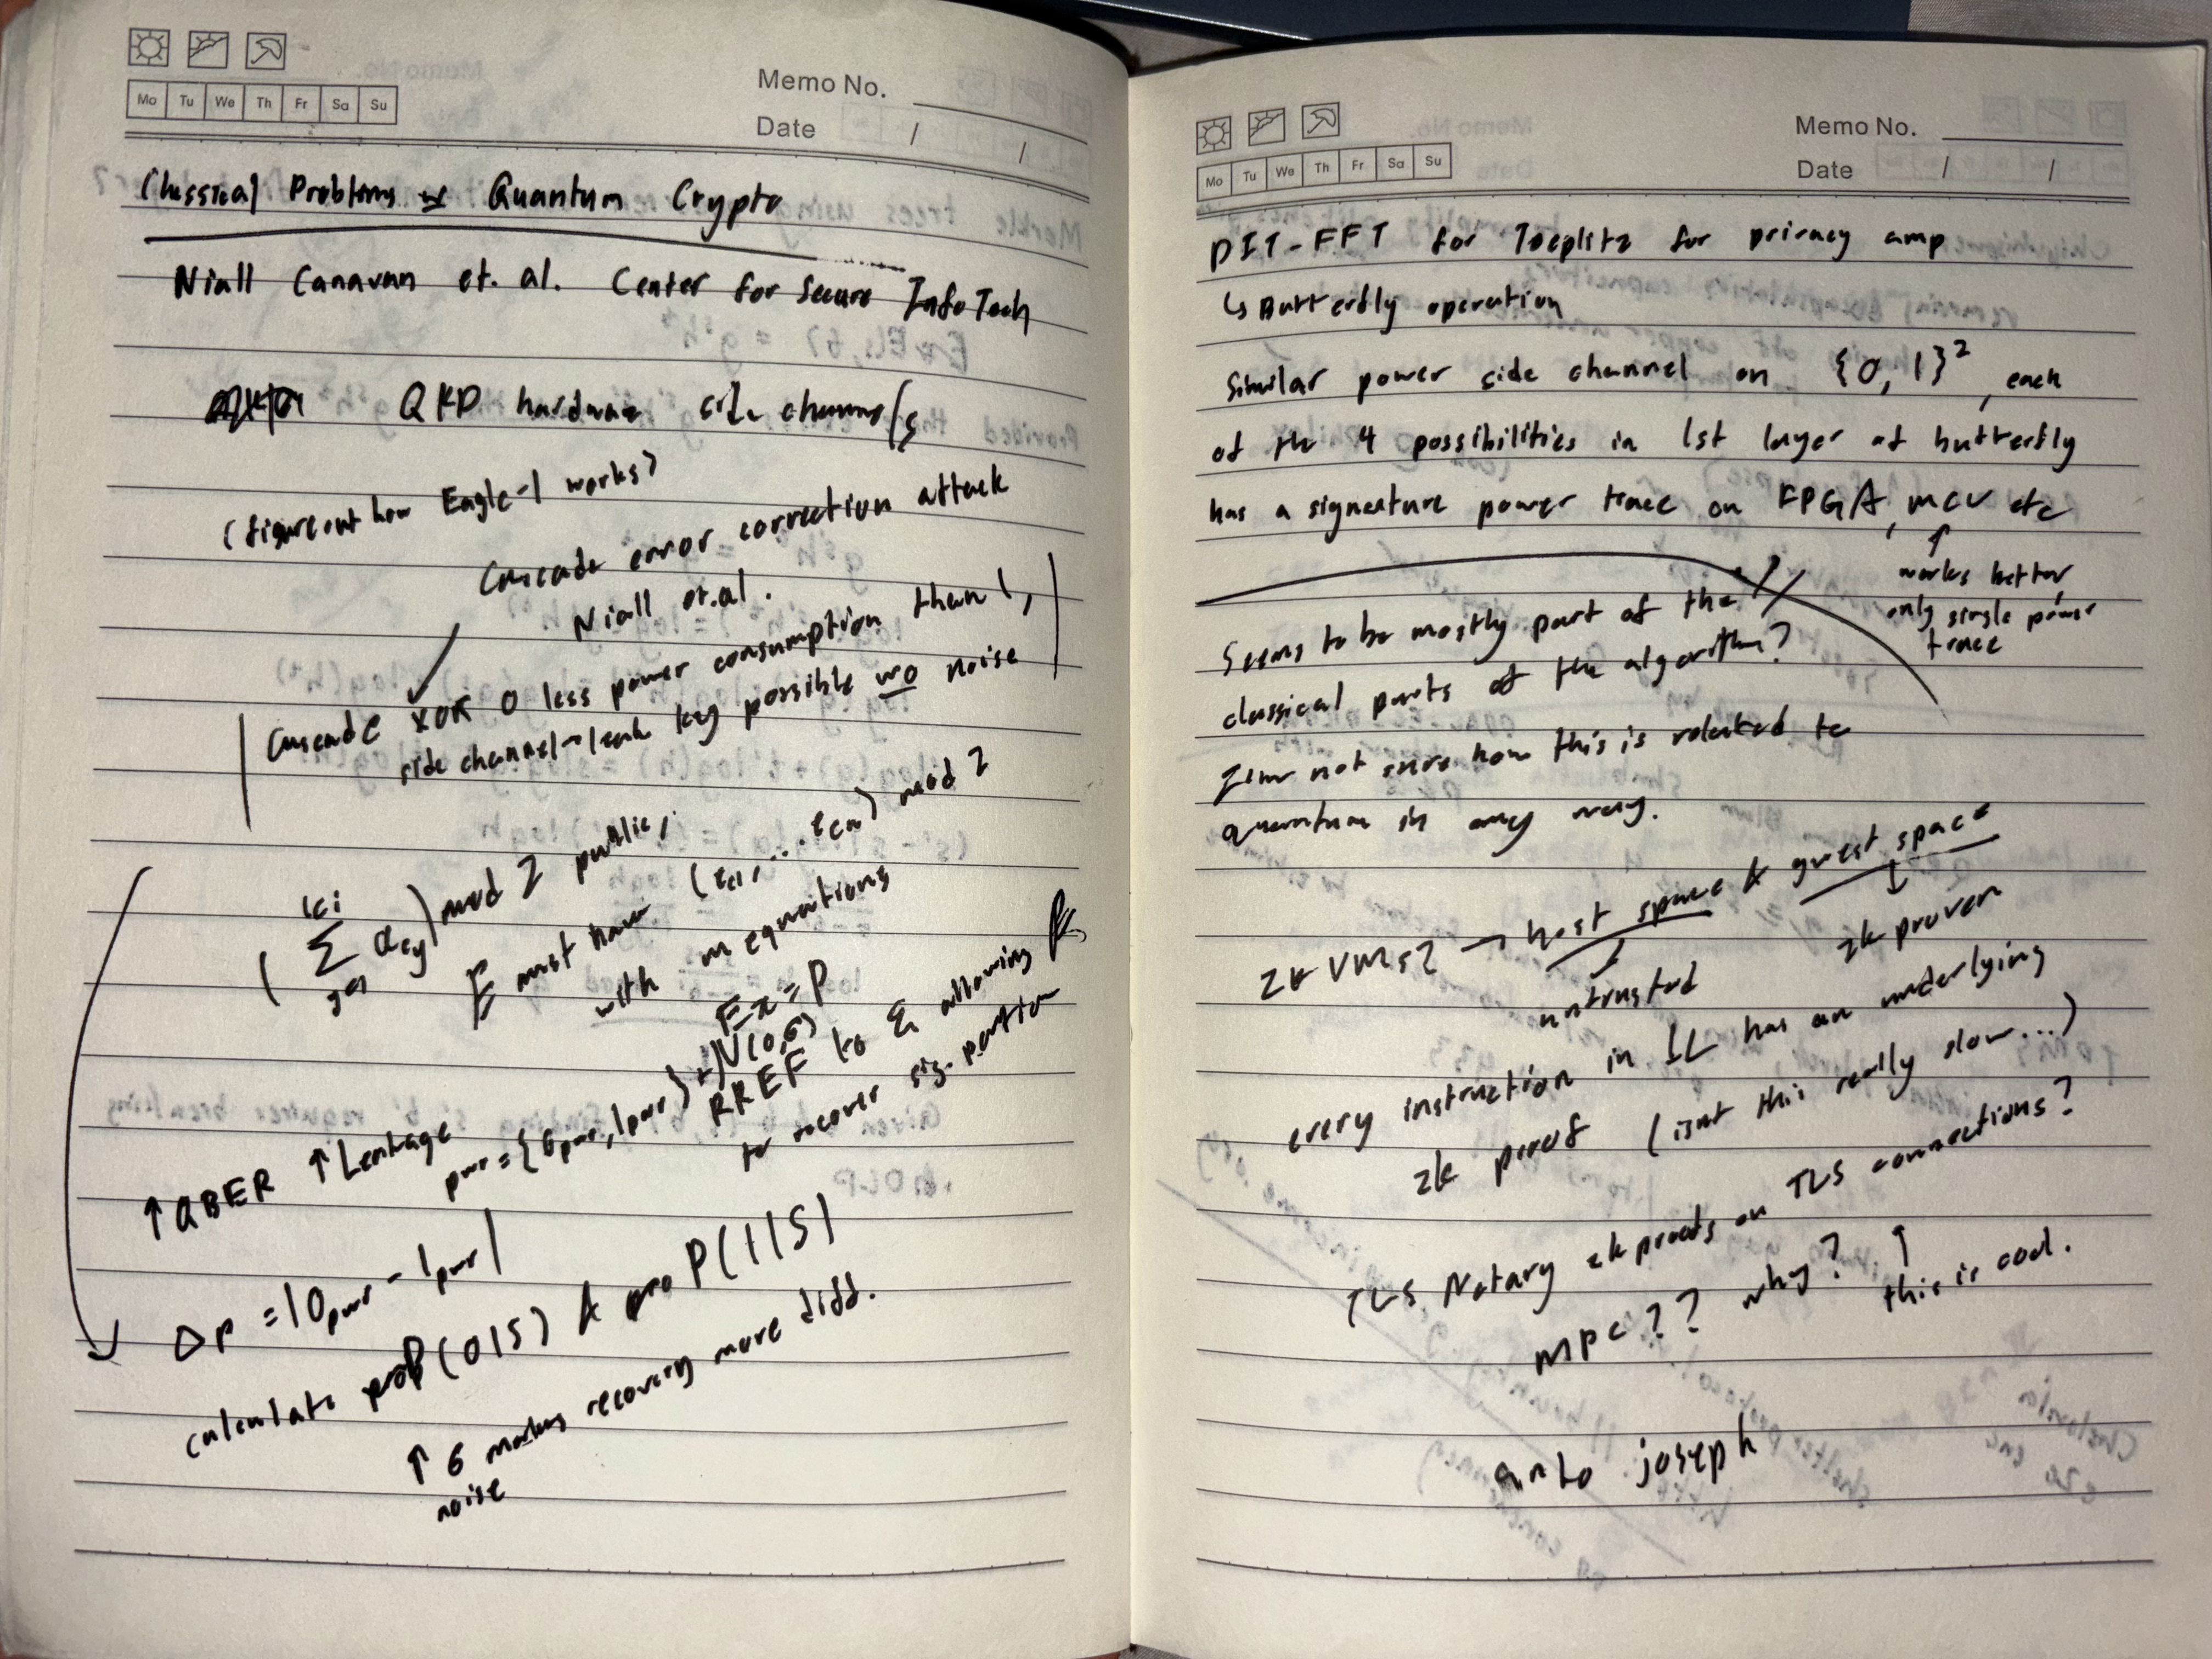 Memo No.
Mo Tu We Th Fr Sa Su
Date / /
Classical Problems w Quantum Crypto
Niall Canavan et. al. Center for Secure InfoTech
QKD hardware side channels
(figure out how Eagle-1 works)
Cascade error correction attack
Niall et.al.
Cascade XOR 0 less power consumption than 1,
side channel → leak key possible wo noise
mod 2 public,
E must have (ϵc1, ... ϵcn) mod 2
with m equations
Ex = P
+ N(0,σ)
RREF to E allowing
to recover sig. portion
↑ QBER ↑ Leakage
pwr = {0pwr, 1pwr}
Δp = |0pwr - 1pwr|
calculate prob(0|S) & P(1|S)
↑ σ making recovery more diff.
noise
Memo No.
Mo Tu We Th Fr Sa Su
Date / /
DIT-FFT for Toeplitz for privacy amp
↳ Butterfly operation
Similar power side channel on {0,1}², each
of the 4 possibilities in 1st layer of butterfly
has a signature power trace on FPGA, MCU etc
↑
works better
only single power
trace
Seems to be mostly part of the
classical parts of the algorithm?
I'm not sure how this is related to
quantum in any way.
zkVMs? → host space & guest space
untrusted
zk proven
every instruction in IL has an underlying
zk proof (isnt this really slow...)
TLS Notary zk proofs on TLS connections?
MPC?? why? ↑
this is cool.
anto joseph